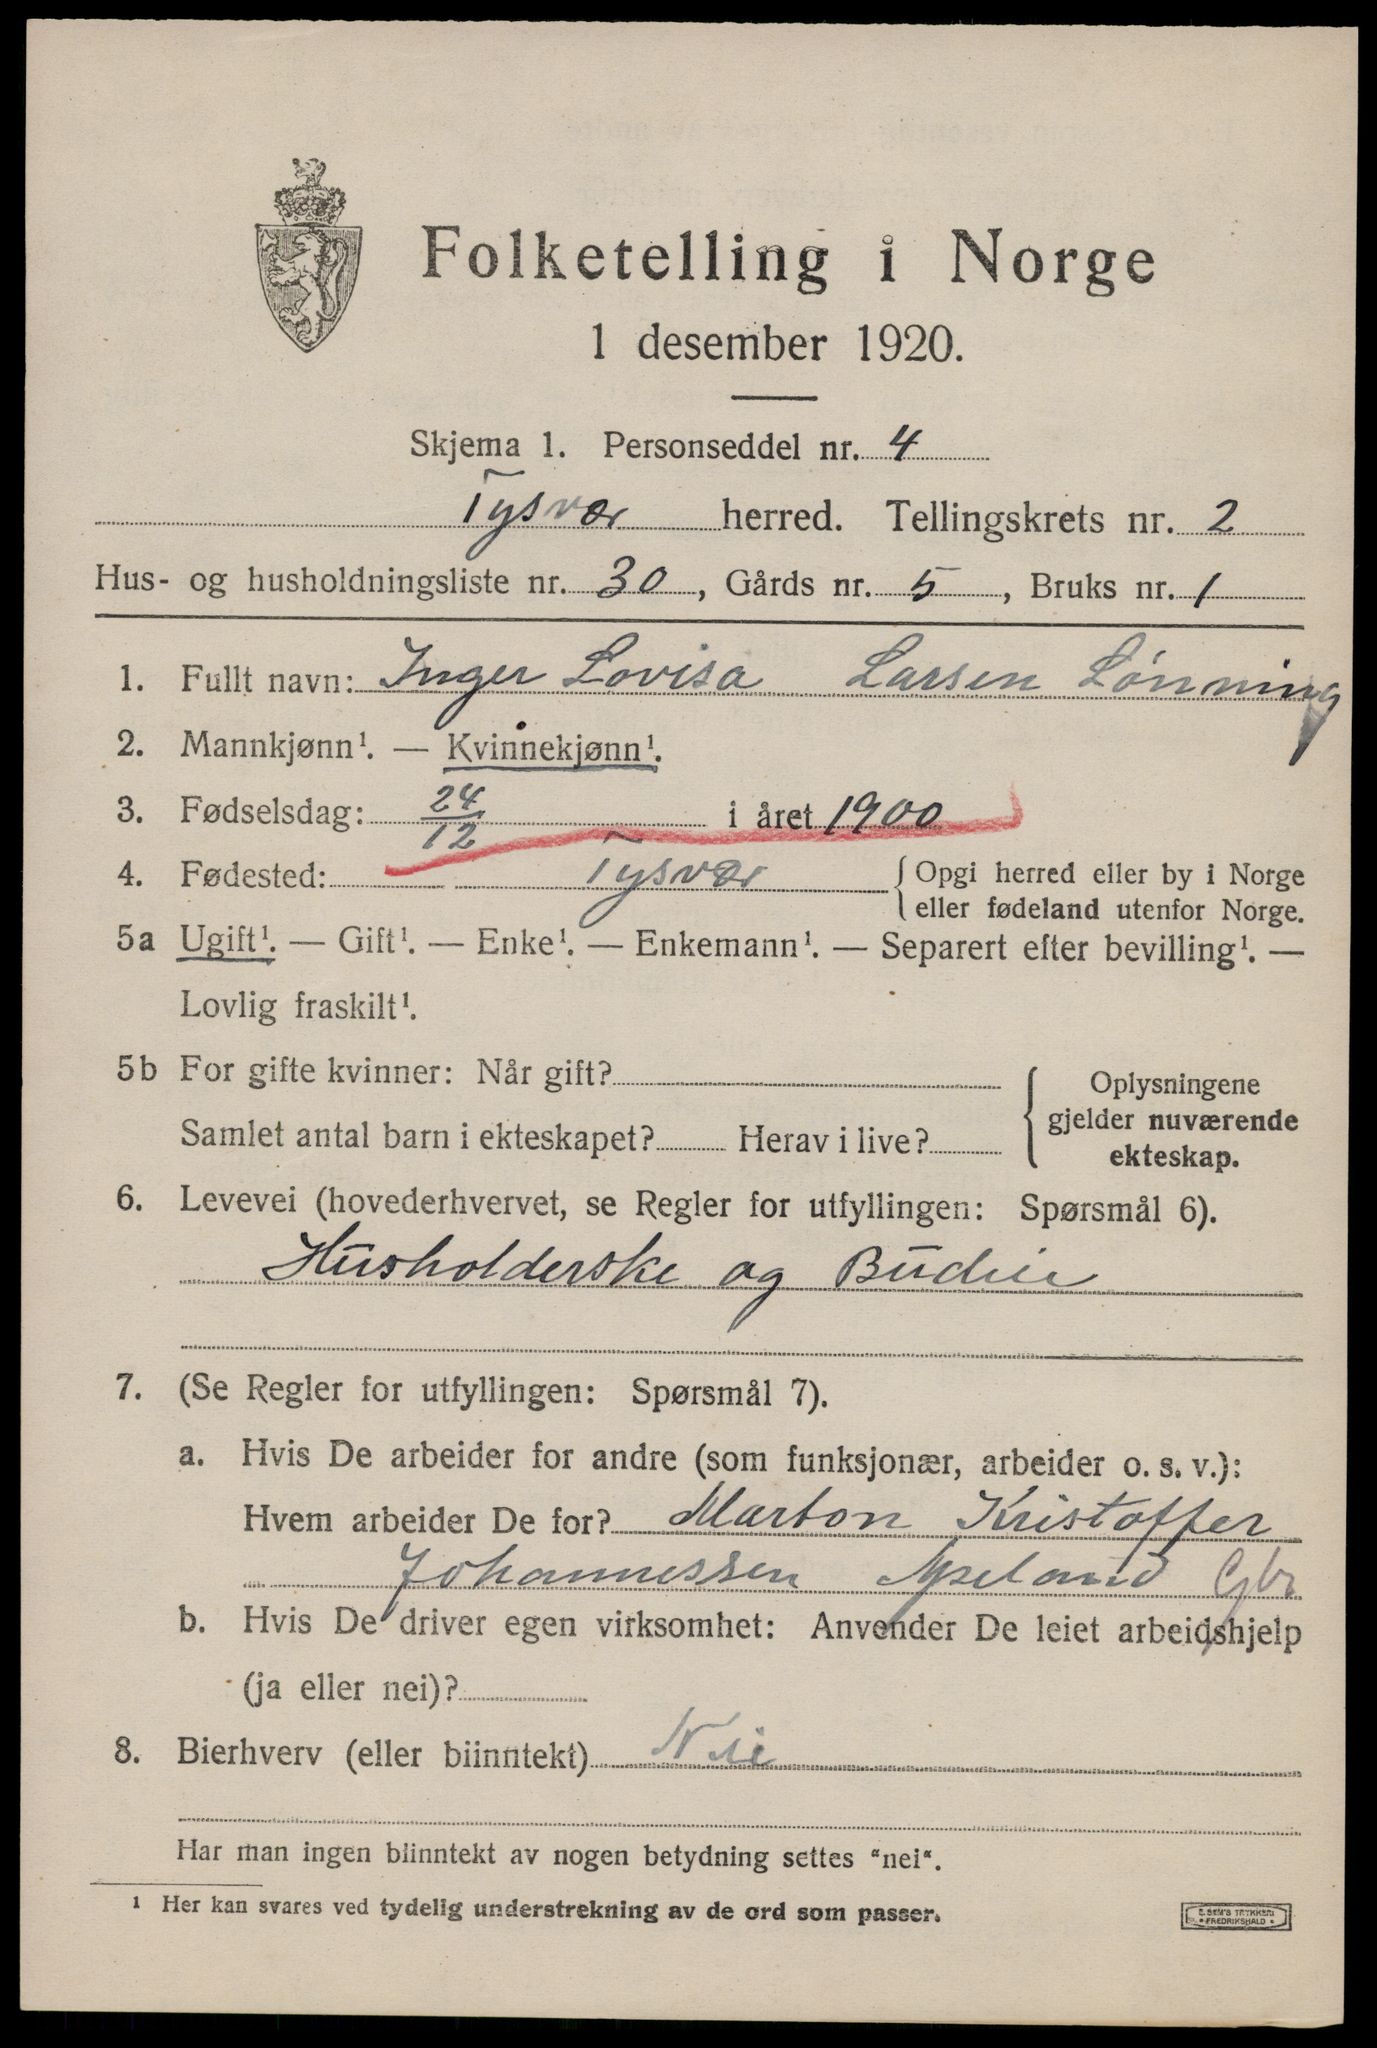 Folketelling i Norge
1 desember 1920.
Skjema 1. Personseddel nr. 4
Tysvær herred. Tellingskrets nr. 2
Hus- og husholdningsliste nr. 30, Gårds nr. 5, Bruks nr. 1
1. Fullt navn: Inger Lovisa Larsen Lönning
2. Mannkjønn¹. — Kvinnekjønn¹.
3. Fødselsdag: 24/12 i året 1900
4. Fødested: Tysvær { Opgi herred eller by i Norge
eller fødeland utenfor Norge.
5a Ugift¹. — Gift¹. — Enke¹. — Enkemann¹. — Separert efter bevilling¹. —
Lovlig fraskilt¹.
5b For gifte kvinner: Når gift?
Samlet antal barn i ekteskapet? Herav i live?
{ Oplysningene
gjelder nuværende
ekteskap.
6. Levevei (hovederhvervet, se Regler for utfyllingen: Spørsmål 6).
Husholderske og Budeie
7. (Se Regler for utfyllingen: Spørsmål 7).
a. Hvis De arbeider for andre (som funksjonær, arbeider o. s. v.):
Hvem arbeider De for? Marton Kristoffer
Johannessen Apeland Gbr
b. Hvis De driver egen virksomhet: Anvender De leiet arbeidshjelp
(ja eller nei)?
8. Bierhverv (eller biinntekt) Nei
Har man ingen biinntekt av nogen betydning settes "nei".
¹ Her kan svares ved tydelig understrekning av de ord som passer.
E. SEM'S TRYKKERI
FREDRIKSHALD